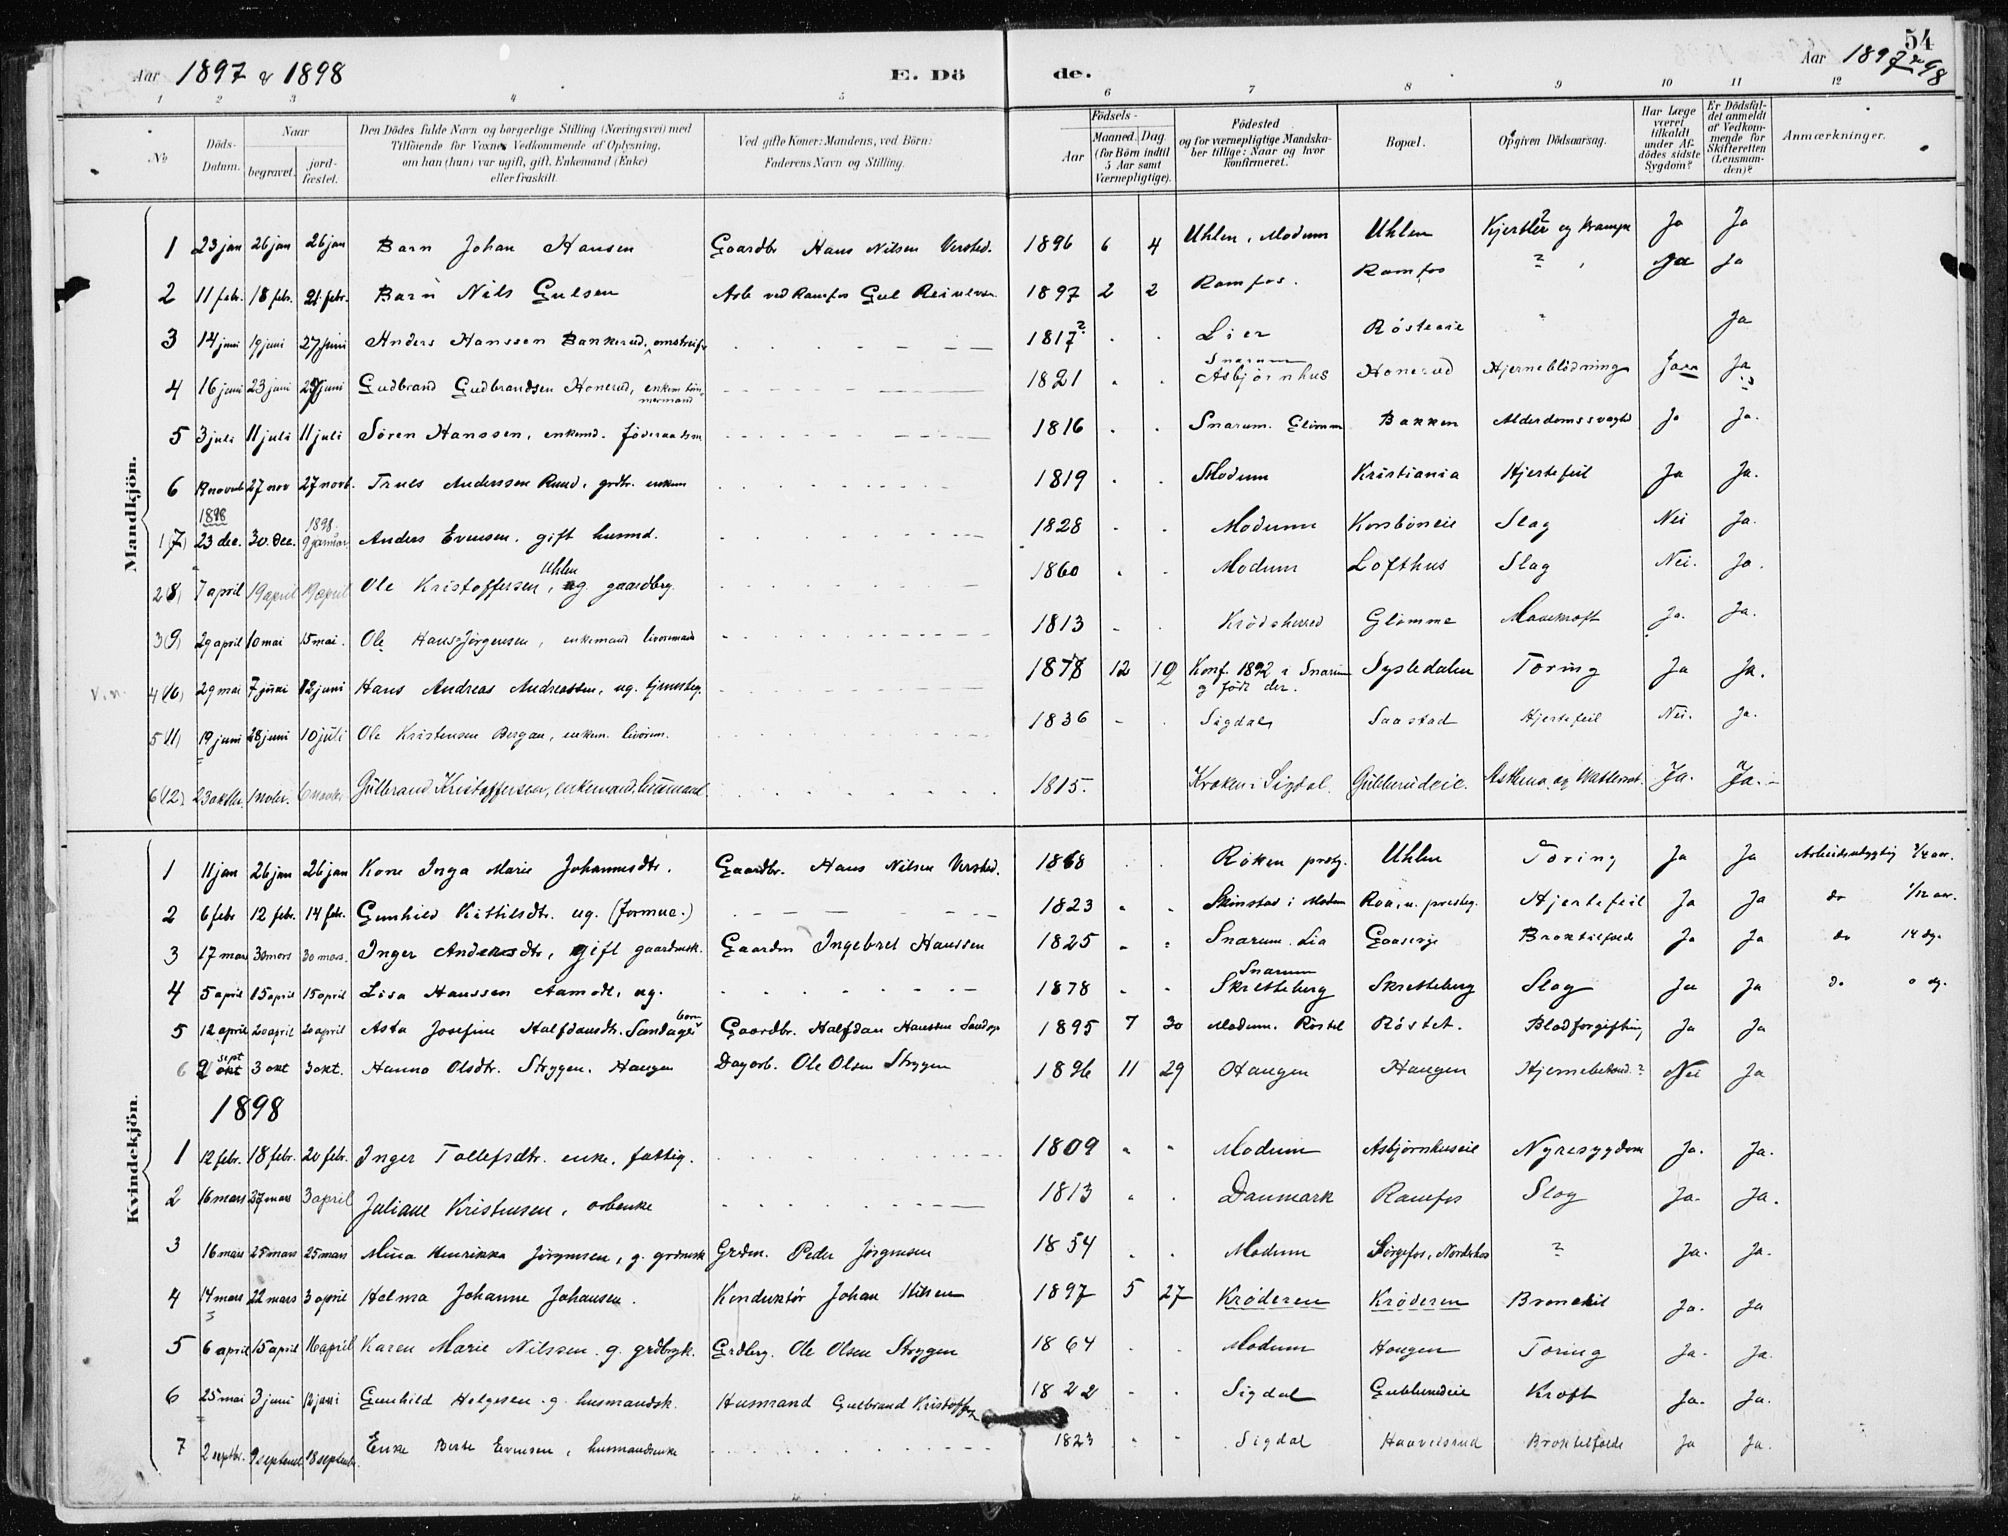 Aar 1897 & 1898 E. Dö de. Aar 1897 & 98 54
1 2 3 4 5 6 7 8 9 10 11 12
No
Döds-Datum.
Naar
begravet.
jord-fæstet.
Den Dödes fulde Navn og borgerlige Stilling (Næringsvei) med
Tilföiende for Voxnes Vedkommende af Oplysning,
om han (hun) var ugift, gift, Enkemand (Enke)
eller fraskilt.
Ved gifte Koner: Mandens, ved Börn:
Faderens Navn og Stilling.
Födsels-
Aar
Maaned. Dag.
(for Börn indtil
5 Aar samt
Værnepligtige).
Födested
og for værnepligtige Mandska-
ber tillige: Naar og hvor
konfirmeret.
Bopæl.
Opgiven Dödsaarsag.
Har Læge
været
tilkaldt
under Af-
dödes sidste
Sygdom?
Er Dödsfal-
det anmeldt
af Vedkom-
mende for
Skifteretten
(Lensman-
den)?
Anmærkninger.
Mandkjön.
1 23 jan 26 jan 26 jan Barn Johan Hansen Gaardbr Hans Nilsen Versted. 1896 6 4 Uhlen, Modum Uhlen Kjertler? og Krampe Ja Ja
2 11 febr. 18 febr. 21 febr. Barn Nils Gulsen Arb ved Ramfos Gul 1897 2 2 Ramfos. Ramfos ? Ja Ja
3 14 juni 19 juni 27 juni Anders Hanssen Bankerud, omstreifer 1817? Lier Rösteeie Ja
4 16 juni 23 juni 27 juni Gudbrand Gudbrandsen Honerud, enkem töm-mermand 1821 Snarum Asbjørnhus Honerud Hjerneblödning Ja Ja
5 3 juli 11 juli 11 juli Sören Hanssen, enkemd. föderaadsm 1816 Snarum. Glömm Bakken Alderdomssvaghd Ja Ja.
6 19 novemb 27 nov 27 novb. Truls Anderssen Ruud, grdbr. enkem 1819 Modum Kristiania Hjertefeil Ja Ja.
1898
1 (7) 23 dec. 30. dec. 1898 9 januar Anders Evensen. gift husmd. 1828 Modum Korsböneie Slag Nei Ja.
2 (8) 7 april 19 april 19 april Ole Kristoffersen Uhlen, ug. gaardbrg. 1860 Modum Lofthus Slag Nei. Ja.
3 (9) 29 april 10 mai 15 mai. Ole Hans Jörgensen, enkemand livöremand 1813 Krödsherred Glömme Mavekræft Ja. Ja.
4 (10) 29 mai 7 juni 12 juni Hans Andreas Andreassen, ug. tjenesteg. 1878 12 12 Konf. 1892 i Snarum og født der. Sysledalen Tæring Ja Ja.
5 (11) 19 juni 28 juni 10 juli Ole Kristensen Bergan, enkem. livörem. 1836 Sigdal Saastad Hjertefeil Nei. Ja.
6 (12) 23 oktbr. 1 novbr. 6 novbr. Gulbrand Kristoffersen, enkemand, husmand 1815. Kroken i Sigdal. Gubberudeie. Asthma og Vattersot. Ja. Ja.
Kvindekjön.
1 11 jan 26 jan 26 jan Kone Inga Marie Johannesdtr. Gaardbr. Hans Nilsen Versted. 1868 Röken prstg. Uhlen Tæring Ja Ja Arbeidsudygtig 3/4 aar.
2 6 febr 12 febr. 14 febr. Gunhild Kittilsdtr. ug. (formue.) 1823 Skinstad i Modum Roa, n. presteg. Hjertefeil Ja Ja do 1/12 aar.
3 17 mars 30 mars 30 mars. Inger Andersdtr, gift gaardmsk. Gaardm Ingebret Hanssen 1825 Snarum. Lia Gaaserje Bröstilfælde Ja Ja do 14 dg.
4 5 april 15 april 15 april Lisa Hanssen Aamodt, ug. 1878 Snarum Skretteberg Skretteberg Slag Ja Ja do 0 dg.
5 12 april 20 april 20 april Asta Josefine Halfdansdtr. Sandager barn Gaardbr. Halfdan Hanssen Sandager 1895 7 30 Modum. Röstet Röstet. Blodforgiftning Ja Ja
6 2 sept 3 okt 3 okt. Hanna Olsdtr. Stryger. Haugen Dagarb. Ole Olsen Strygen 1896 11 29 Haugen Haugen Hjernebetænd.? Nei Ja
1898
1 12 febr. 18 febr. 20 febr. Inger Tollefsdtr. enke, fattig. 1809 Modum Asbjörnhuseie Nyresygdom Ja. Ja.
2 16 mars 27 mars 3 april Juliane Kristensen, arbenke 1813 Danmark Ramfos Slag Ja. Ja.
3 16 mars 25 mars 25 mars Mina Henrikka Jörgensen, g. grdmsk Grdm. Peder Jörgensen 1854 Modum ? Ja. Ja.
4 14 mars 22 mars 3 april Helma Johanne Johansen. Konduktör Johan Nilsen 1897 5 27 Kröderen Kröderen Bronchit Ja. Ja
5 6 april 15 april 16 april Karen Marie Nilssen. g. grdbrgk. Grdbrg. Ole Olsen Strygen 1864 Modum Haugen Tæring Ja. Ja.
6 25 mai 3 juni 12 juni Gunhild Helgesen. g. husmandsk. Husmand Gulbrand Kristoffers. 1822 Sigdal Gubberudeie Kræft Ja. Ja.
7 2 septbr. 9 septemb 18 septemb. Enke Berte Evensen, husmandsenke 1823 Sigdal Haavelsrud Bröstilfælde Ja Ja.